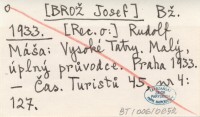 [BROŽ Josef] Bž.
1933. [Rec. o:] Rudolf
Máša: Vysoké Tatry. Malý,
úplný průvodce. Praha 1933.
— Čas. Turistů 45, nr 4:
127.